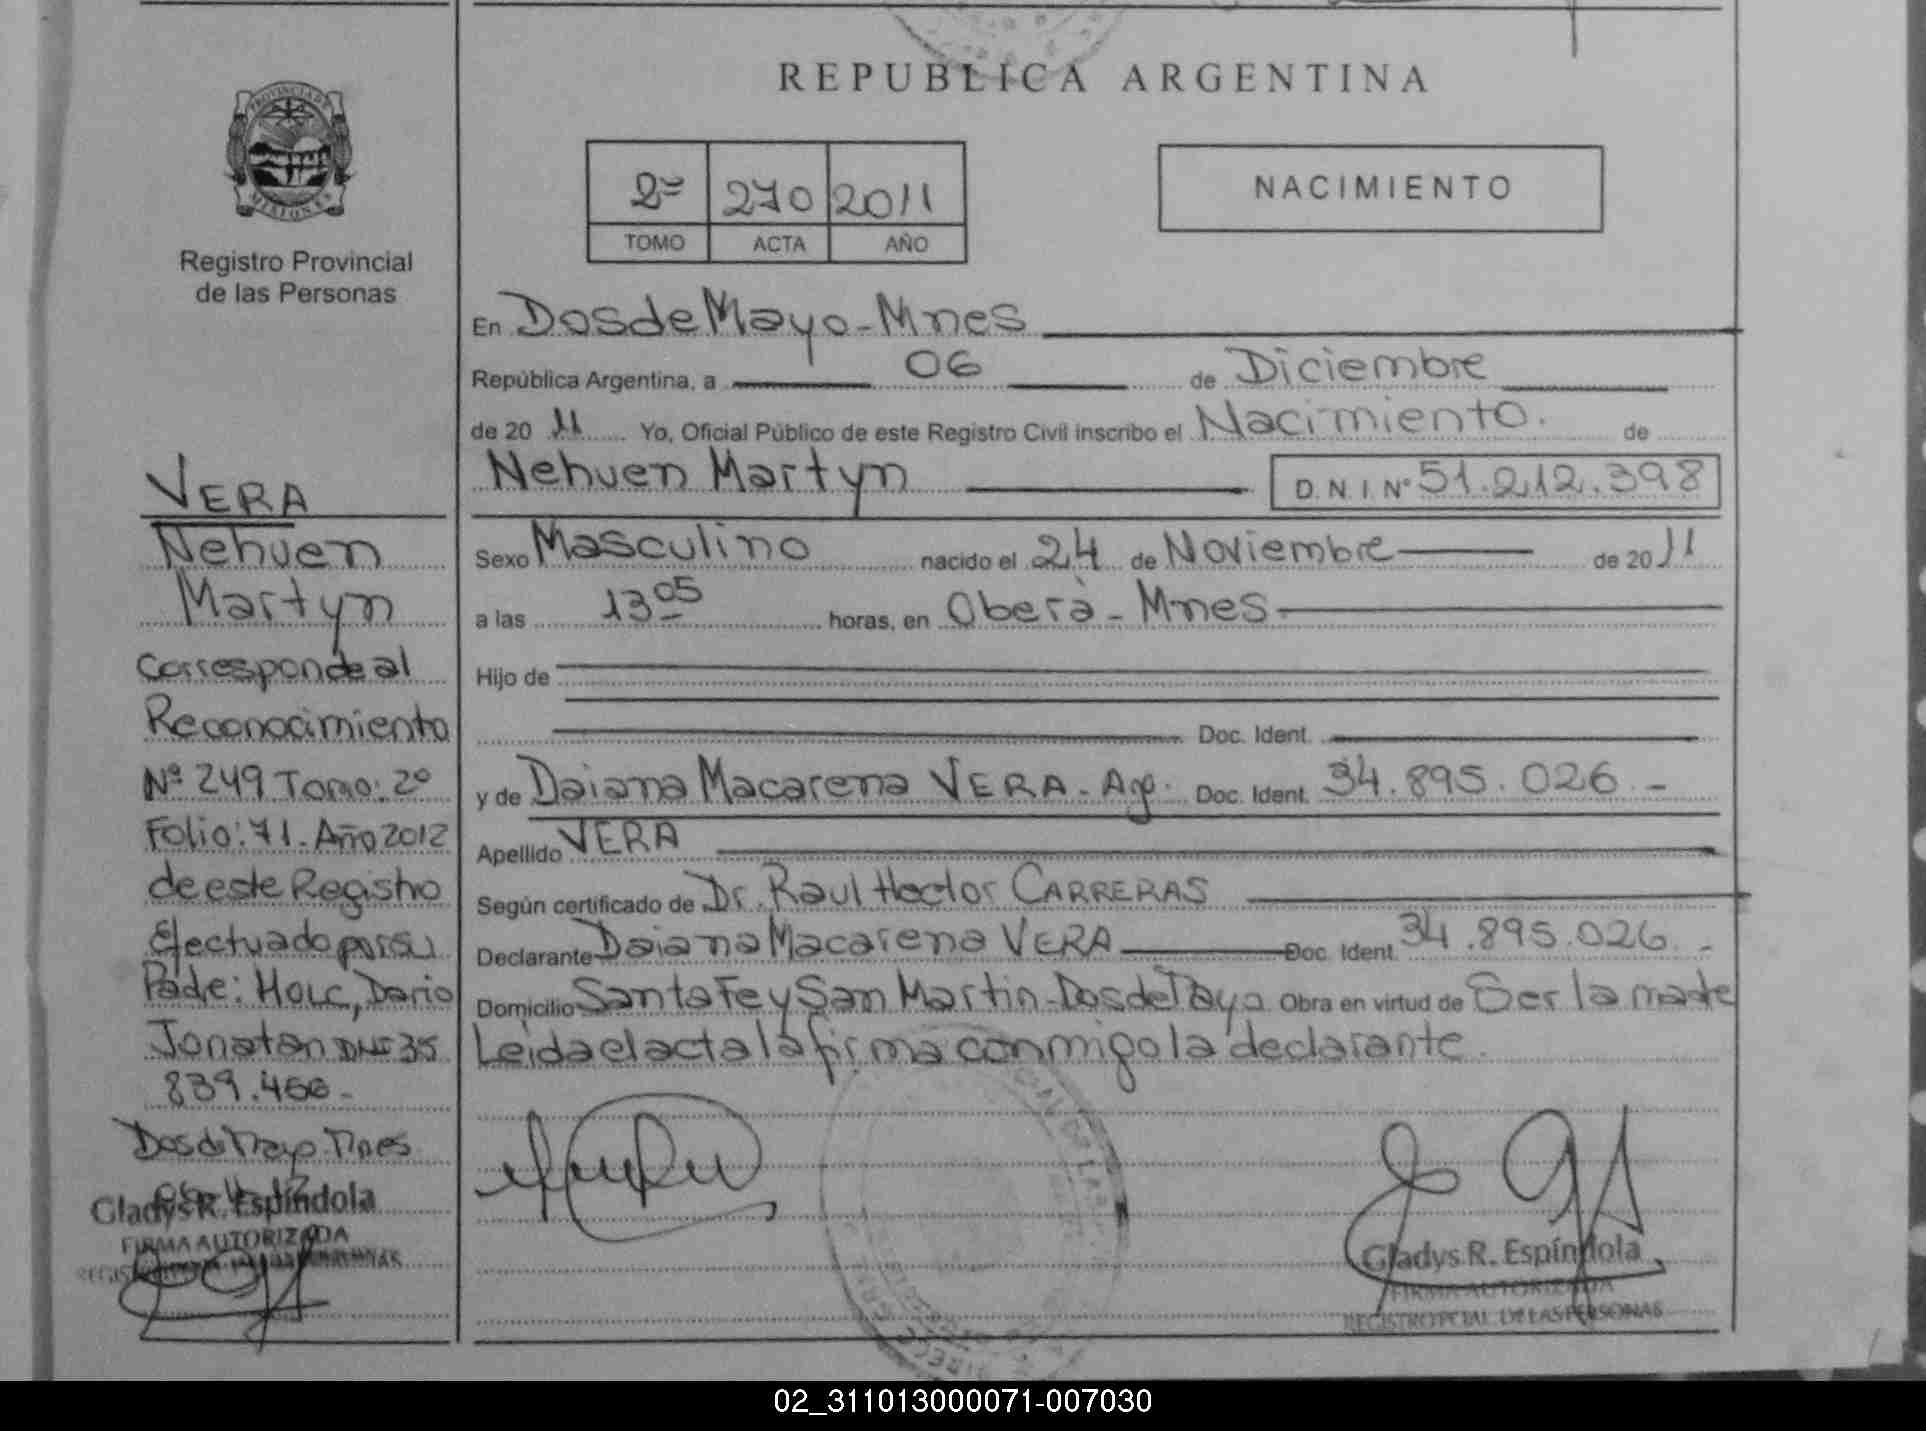 REPUBLICA ARGENTINA
PROVINCIA DE
MISIONES
Registro Provincial
de las Personas
2º 270 2011
TOMO ACTA AÑO
NACIMIENTO
En Dos de Mayo - Mnes
República Argentina, a 06 de Diciembre
de 20 11 Yo, Oficial Público de este Registro Civil inscribo el Nacimiento. de
Nehuen Martyn D.N.I. Nº 51.212.398
Sexo Masculino nacido el 24 de Noviembre de 20 11
a las 13 05 horas, en Oberà - Mnes
Hijo de
Doc. Ident.
y de Daiana Macarena VERA - Arg. Doc. Ident. 34.895.026.-
Apellido VERA
Según certificado de Dr. Raul Hector CARRERAS
Declarante Daiana Macarena VERA Doc. Ident. 34.895.026.-
Domicilio Santa Fe y San Martin - Dos de Mayo Obra en virtud de Ser la madre
Leida el acta la firma conmigo la declarante.
VERA
Nehuen
Martyn
Corresponde al
Reconocimiento
Nº 249 Tomo: 2º
Folio: 71. Año 2012
de este Registro
Efectuado por su
Padre: Dario
Jonatan DNI 35
839.466-
Dos de Mayo Mnes
Gladys R. Espíndola
FIRMA AUTORIZADA
Gladys R. Espíndola
FIRMA AUTORIZADA
REGISTRO PCIAL. DE LAS PERSONAS
02_311013000071-007030